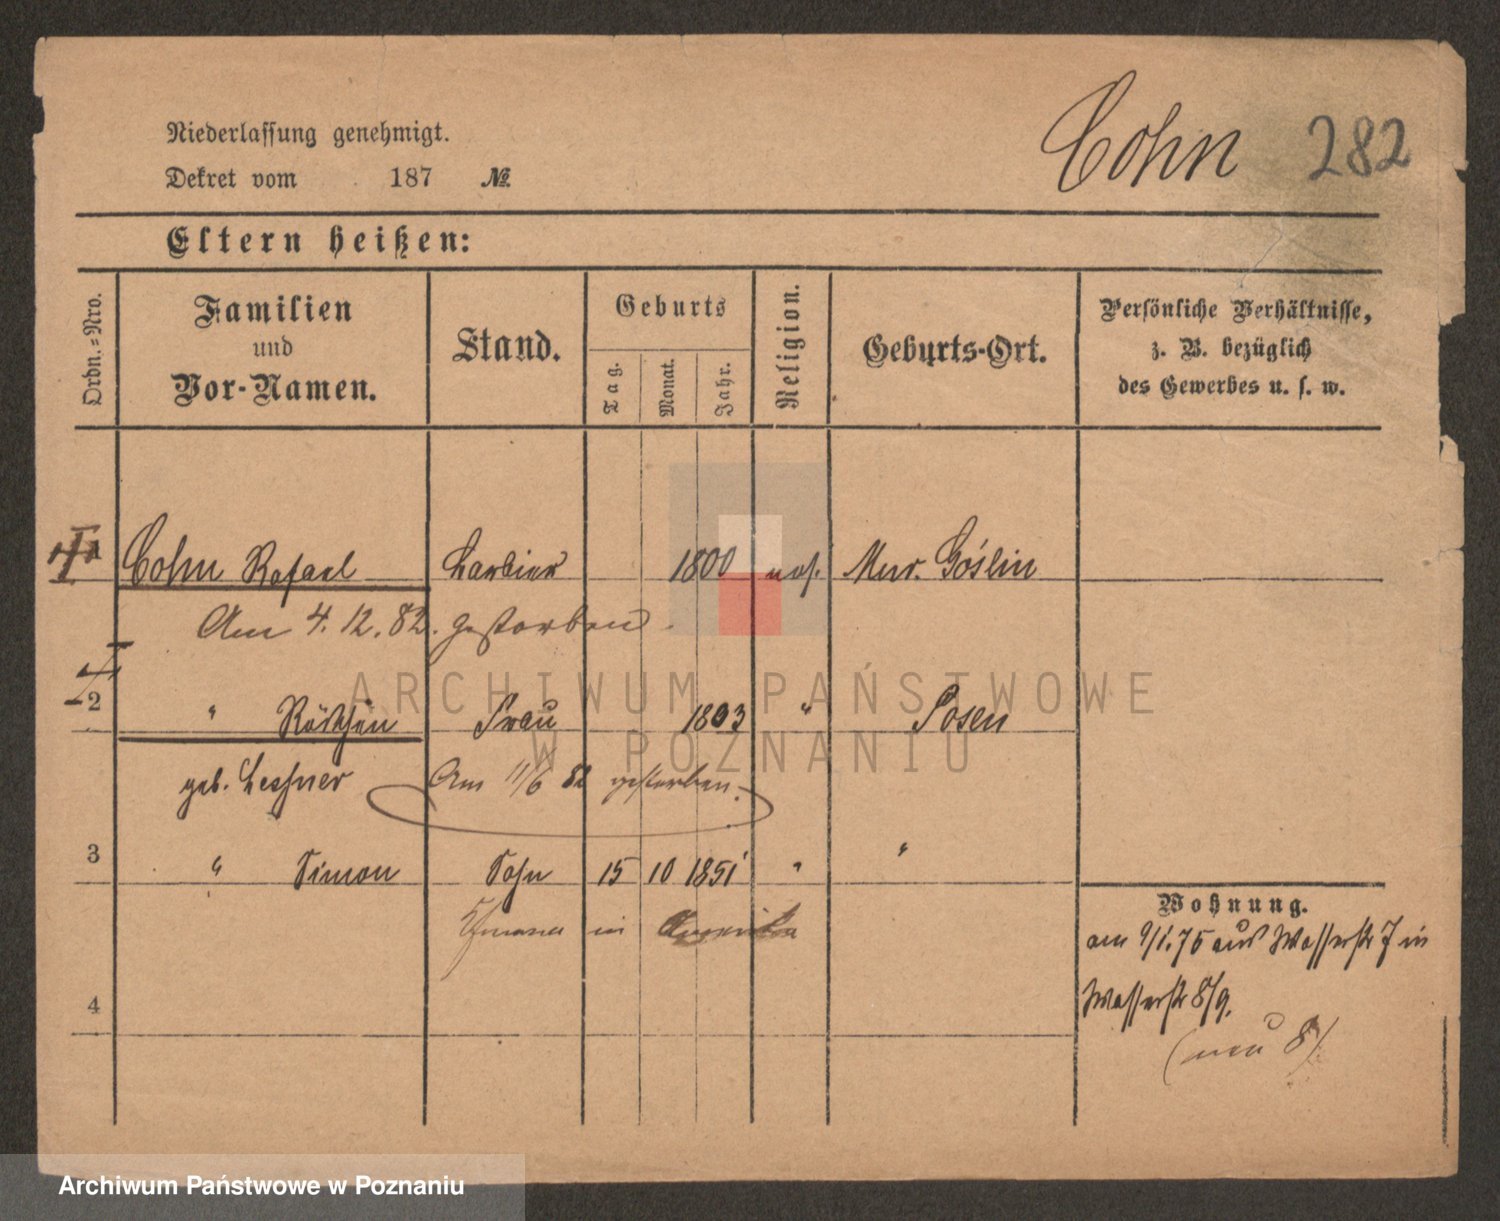 Niederlassung genehmigt.
Dekret vom 187 №
Cohn 282
Eltern heißen:
Ordn.-Nro.
Familien und Vor-Namen.
Stand.
Geburts
Tag.
Monat.
Jahr.
Religion.
Geburts-Ort.
Persönliche Verhältnisse,
z. B. bezüglich
des Gewerbes u. s. w.
1 Cohn Rafael Barbier 1800 mos. Mur. Goślin
Am 4. 12. 82. gestorben.
2 " Röschen Frau 1803 " Posen
geb. Leßner Am 11/6 82 gestorben.
3 " Simon Sohn 15 10 1851 " "
in Amerika
4
Wohnung.
am 9/1.75 aus Wasserstr 7 in
Wasserstr 8/9.
(neu 8/
ARCHIWUM PAŃSTWOWE
W POZNANIU
Archiwum Państwowe w Poznaniu